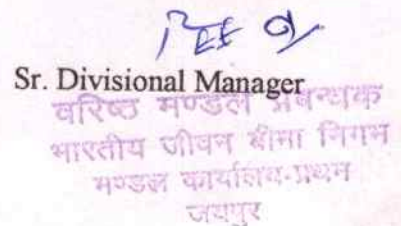 Sr. Divisional Manager
वरिष्ठ मण्डल प्रबन्धक
भारतीय जीवन बीमा निगम
मण्डल कार्यालय-प्रथम
जयपुर